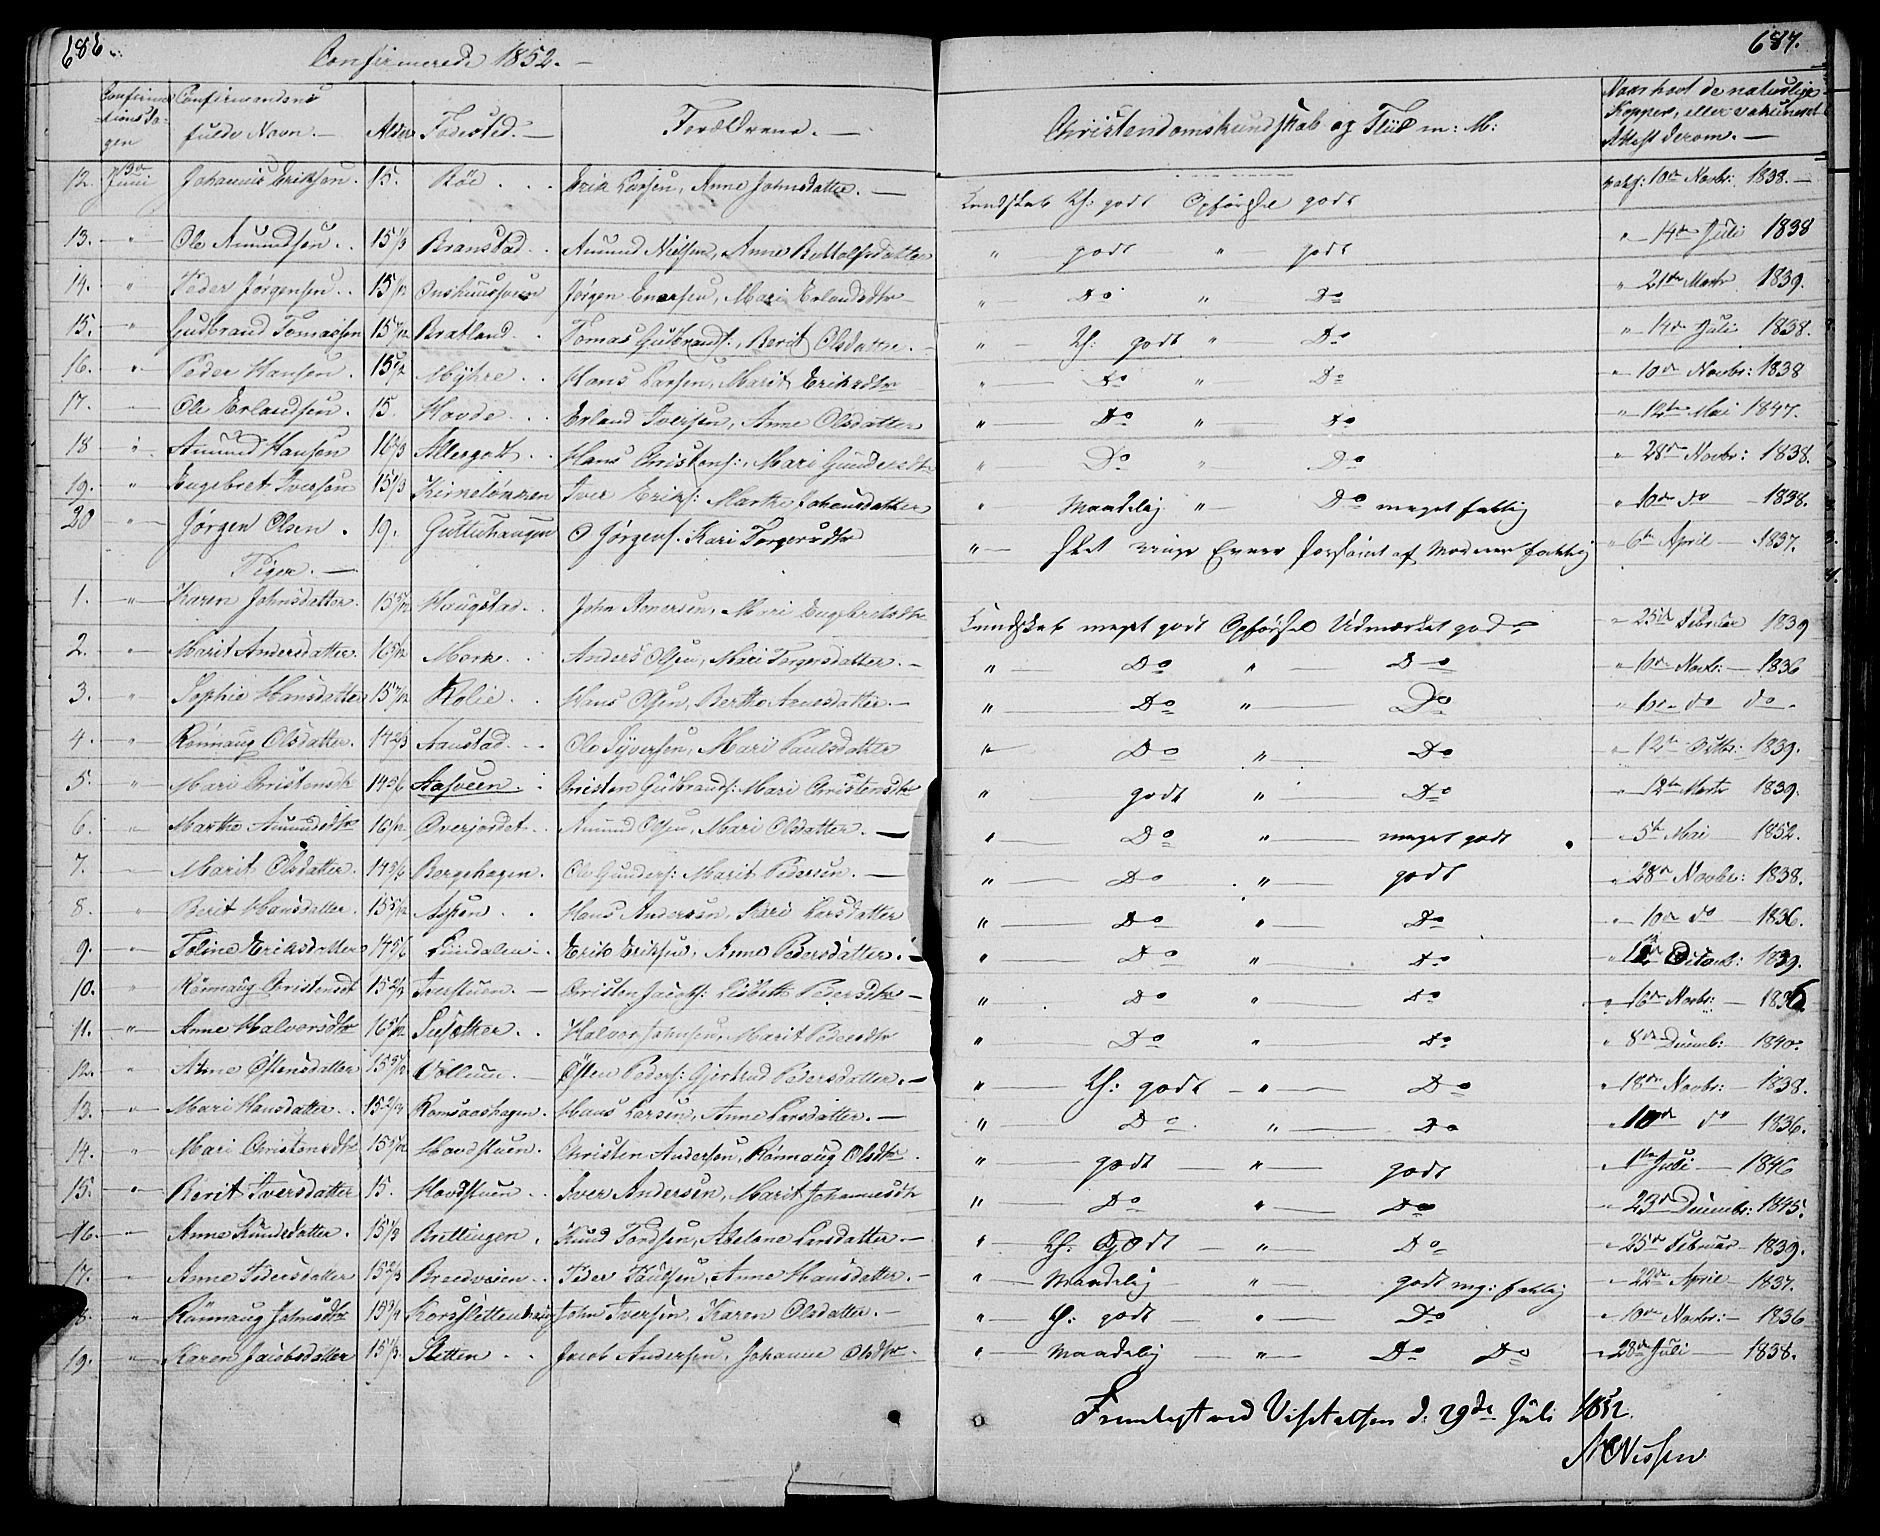 686. 687.
Confirmerede 1852. —
Confirmationsdagen Confirmandens fulde Navn. — Alder Fødested. — Forældrene. — Christendomskundskab og Flid m: M: Naar havt de naturlige Kopper, eller vakcineret Attest derom. —
12. Juni Johannis Eriksen. 15. Röe . . . Erik Larsen, Anne Johnsdatter. — Kundskab Tf: godt Opførsel godt 10de Novbr: 1838. —
13. " Ole Amundsen . . 15 1/3 Branstad . . Amund Nielsen, Anne " godt " godt " 14de Juli 1838
14. " Peder Jørgensen . . Jørgen Enersen, Mari Erlandsdtr — " Do " Do " 21de Marts 1839.
15. " Gudbrand Tomassen Bratland . Tomas Gudbrands:, Berit Olsdatter. — " godt " Do " 14de Juli 1838.
16. " Peder Hansen . Myhre . . Hans Larsen, Marit Eriksdtr " Do " Do " 10de Novbr: 1838
17. Ole Erlandsen. 15. Havde . . . Erland Iversen, Anne Olsdatter " Do " Do " 12te Mai 1847.
18 " Amund Hansen 16 2/3 . . Hans Christens:, Mari Gundersdtr " Do " Do " 28de Novbr: 1838.
19. " Engebret Iversen 15 1/3 Iver Eriks: Marthe Johansdatter " Maadelig " Do meget fattig " 10de do — 1838.
20 " Jørgen Olsen . 19. O Jørgens: Kari Torgersdtr " — Slet ringe Evner forsømt af Moderen fattig " 6te April — 1837.
Piger. —
1. " Karen Johnsdatter. 15 5/12 Haugstad . . John Engebretsdtr Kundskab meget godt Opførsel Udmærket godt " 25de Februar 1839
2. " Marit Andersdatter. 16 5/12 Mork . . Anders Olsen, Mari Torgersdatter. — " Do " Do " 10de Novbr: — 1836
3. " Sophie Hansdatter Kolie . . Hans Olsen, Berthe Arnesdatter. — " Do " Do " 10de do do
4. " Rønnaug Olsdatter. 14 2/3 Aanstad . . . Ole Syversen, Mari Paulsdatter " Do " Do " 12te Octbr: 1839.
5. " Mari Christensdtr 14 5/6 Aasveen . . Christen Gudbrands: Mari Christensdtr " godt " Do " 12te Marts 1839.
6. " Marthe Amundsdtr 16 1/12 Øverjordet . . Amund Olsen, Mari Olsdatter. — " Do " meget godt " 5te Mai 1852.
7. Marit Olsdatter. 14 5/6 Bergehagen. Ole Gunders: Marit Pedersen. — " Do " godt " 28de Novbr: 1838.
8. " Berit Hansdatter. 15 5/12 Aspen . . Hans Andersen, Kari Larsdatter " Do " Do " 10de do — 1836.
9. " Toline Eriksdatter 14 5/6 Lundalen . . Erik Eriksen, Anne Pedersdatter. — " Do " Do " Octob: 1839.
10. " Rønnaug Christensdt Iverstuen. — Christen Jacobs: Lisbeth Pedersdtr — " Do " Do " 16de Novbr: — 1836.
11. " Anne Halvorsdtr 16 5/12 . . Halvor Johnsen, Marit Pedersdtr " Do " Do " 8de Decemb: 1840.
12. " Anne Østensdatter Vollum. — Østen Peders: Gjertrud Pedersdatter. — " godt " Do " 18de Novbr: — 1838.
13. " Mari Hansdatter. . Ramsaashagen. Hans Larsen, Anne Larsdatter. — " Do " Do " 10de do — 1836.
14. " Mari Christensdtr Havdstuen. Christen Andersen, Rønnaug Olsdtr . " godt " godt " 1te Juli — 1846
15. " Berit Iversdatter 15. Havdstuen . . Iver Andersen, Marit Johannesdtr " Do " Do " 23de Decembr: 1845.
16. " Anne Knudsdatter. 15 1/3 Brettingen . Knud Tordsen, Abelone Larsdatter — " Godt " Do " 25de Februar — 1839.
17. " Anne Pedersdatter Bredveien . . Peder Paulsen, Anne Hansdatter. — " Maadelig " godt mg: fattig " 22de April — 1837.
18. " Rønnaug Johnsdtr John Iversen, Karen Olsdatter. — " godt " Do " 10de Novbr: — 1836
19. " Karen Jacobsdatter 15 1/3 Sletten . . Jacob Andersen, Johanne Olsdtr. — " Maadelig " Do Do " 28de Juli — 1838.
Fremlagt ved Visitatsen d: 29de Juli 1852.
Nissen